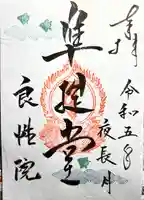 奉拝
令和五年
夜長月
准胝堂
良性院